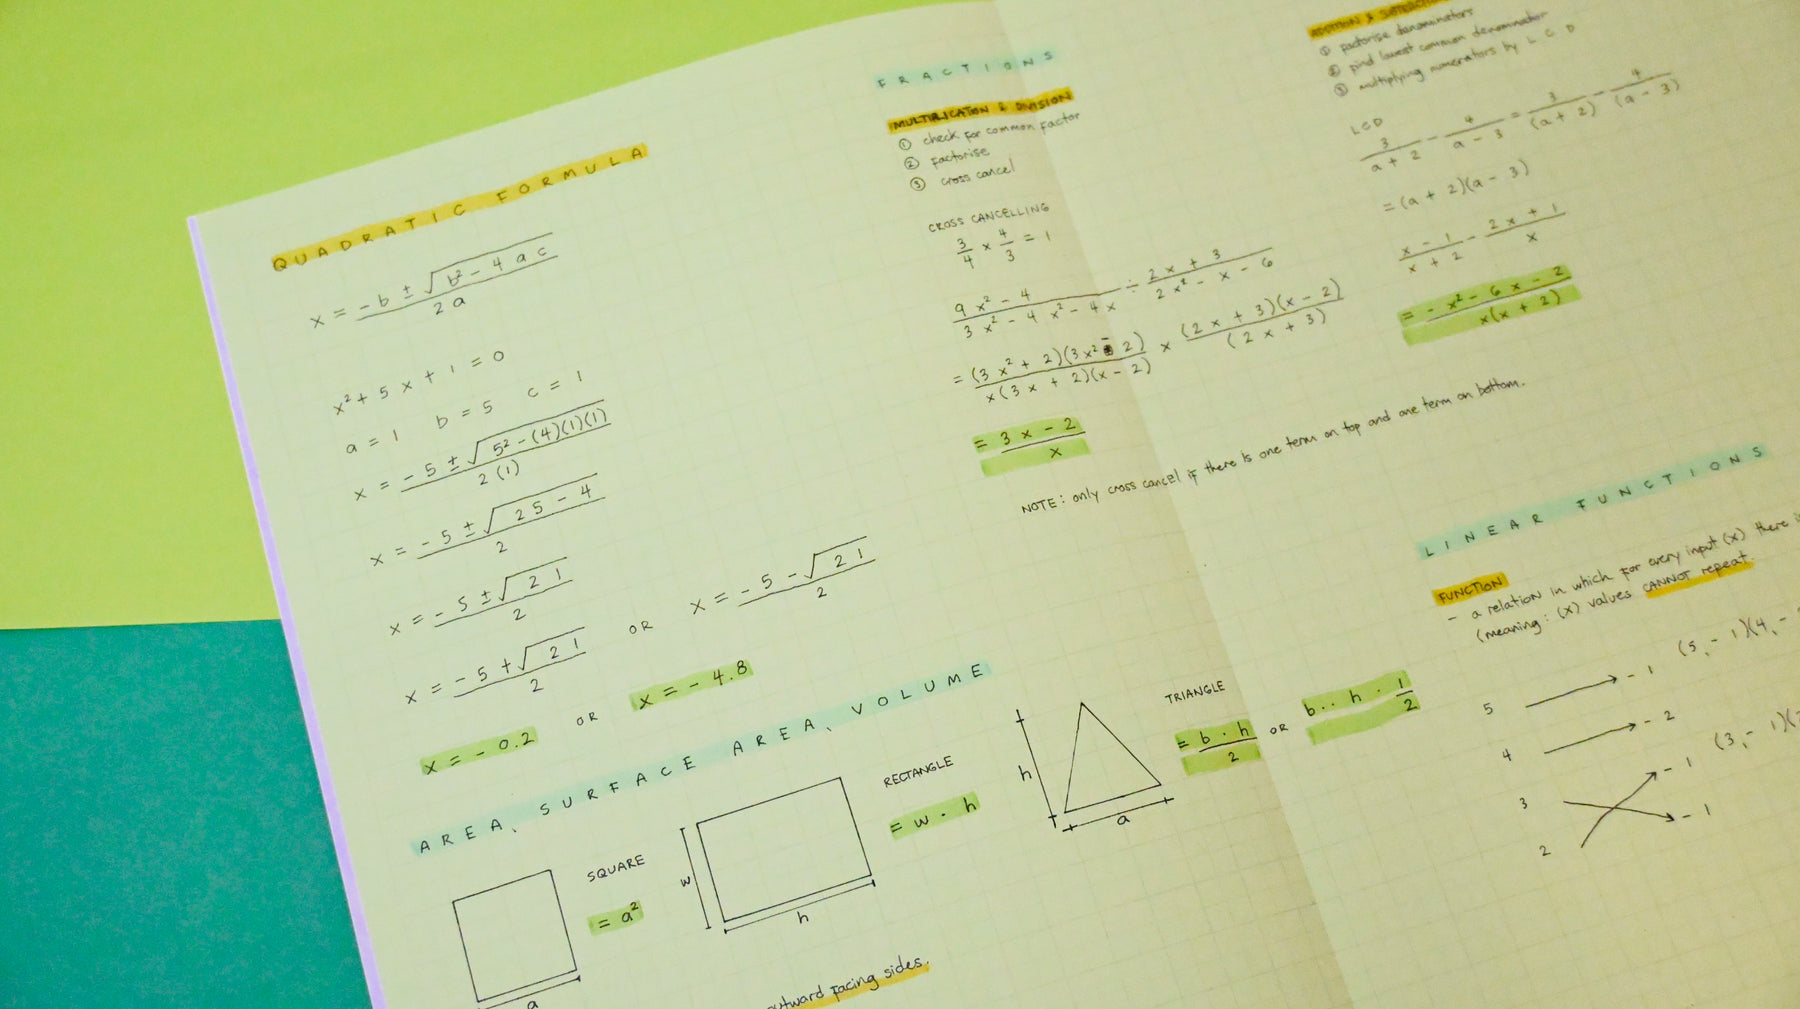 QUADRATIC FORMULA
x = -b ± √b² - 4ac / 2a
x² + 5x + 1 = 0
a = 1 b = 5 c = 1
x = -5 ± √5² - (4)(1)(1) / 2(1)
x = -5 ± √25 - 4 / 2
x = -5 ± √21 / 2
x = -5 + √21 / 2 OR x = -5 - √21 / 2
x = -0.2 OR x = -4.8
AREA, SURFACE AREA, VOLUME
SQUARE
= a²
a
RECTANGLE
= w · h
w
h
TRIANGLE
= b · h / 2 OR b·· h · 1/2
h
a
outward facing sides.
FRACTIONS
MULTIPLICATION & DIVISION
① check for common factor
② factorise
③ cross cancel
CROSS CANCELLING
3/4 × 4/3 = 1
9x² - 4 / 3x² - 4x² - 4x ÷ 2x + 3 / 2x² - x - 6
= (3x² + 2)(3x² - 2) / x(3x + 2)(x - 2) × (2x + 3)(x - 2) / (2x + 3)
= 3x - 2 / x
NOTE: only cross cancel if there is one term on top and one term on bottom.
ADDITION & SUBTRACTION
① factorise denominators
② find lowest common denominator
③ multiplying numerators by LCD
LCD
3 / a + 2 - 4 / a - 3 = 3 / (a + 2) - 4 / (a - 3)
= (a + 2)(a - 3)
x - 1 / x + 2 - 2x + 1 / x
= -x² - 6x - 2 / x(x + 2)
LINEAR FUNCTIONS
FUNCTION
- a relation in which for every input (x) there
(meaning: (x) values CANNOT repeat.
5 → -1 (5, -1)(4, -
4 → -2
3 -1 (3, -1)(
2 -1